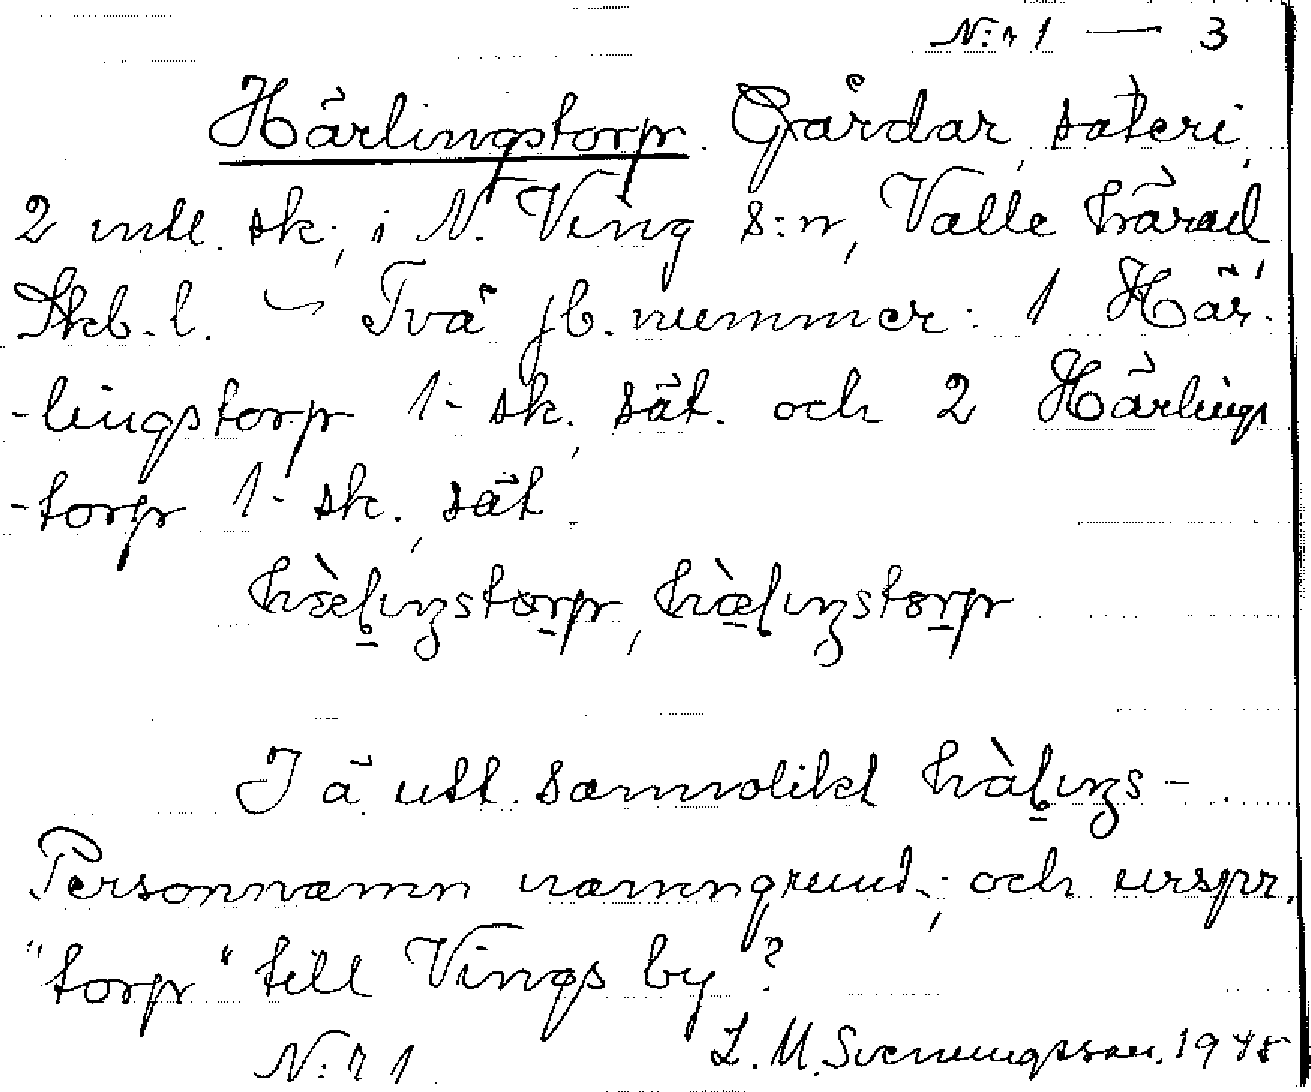 N:r 1 — 3
Härlingstorp. Gårdar, säteri,
2 mtl. sk., i N. Ving s:n, Valle härad
Skb. l. — Två jb. nummer: 1 Här-
-lingstorp 1- sk., sät. och 2 Härlings
-torp 1- sk., sät.
I ä utt. sannolikt
Personnamn namngrund.; och urspr.
"torp" till Vings by?
N:r 1 L. M. Svenungsson. 1948